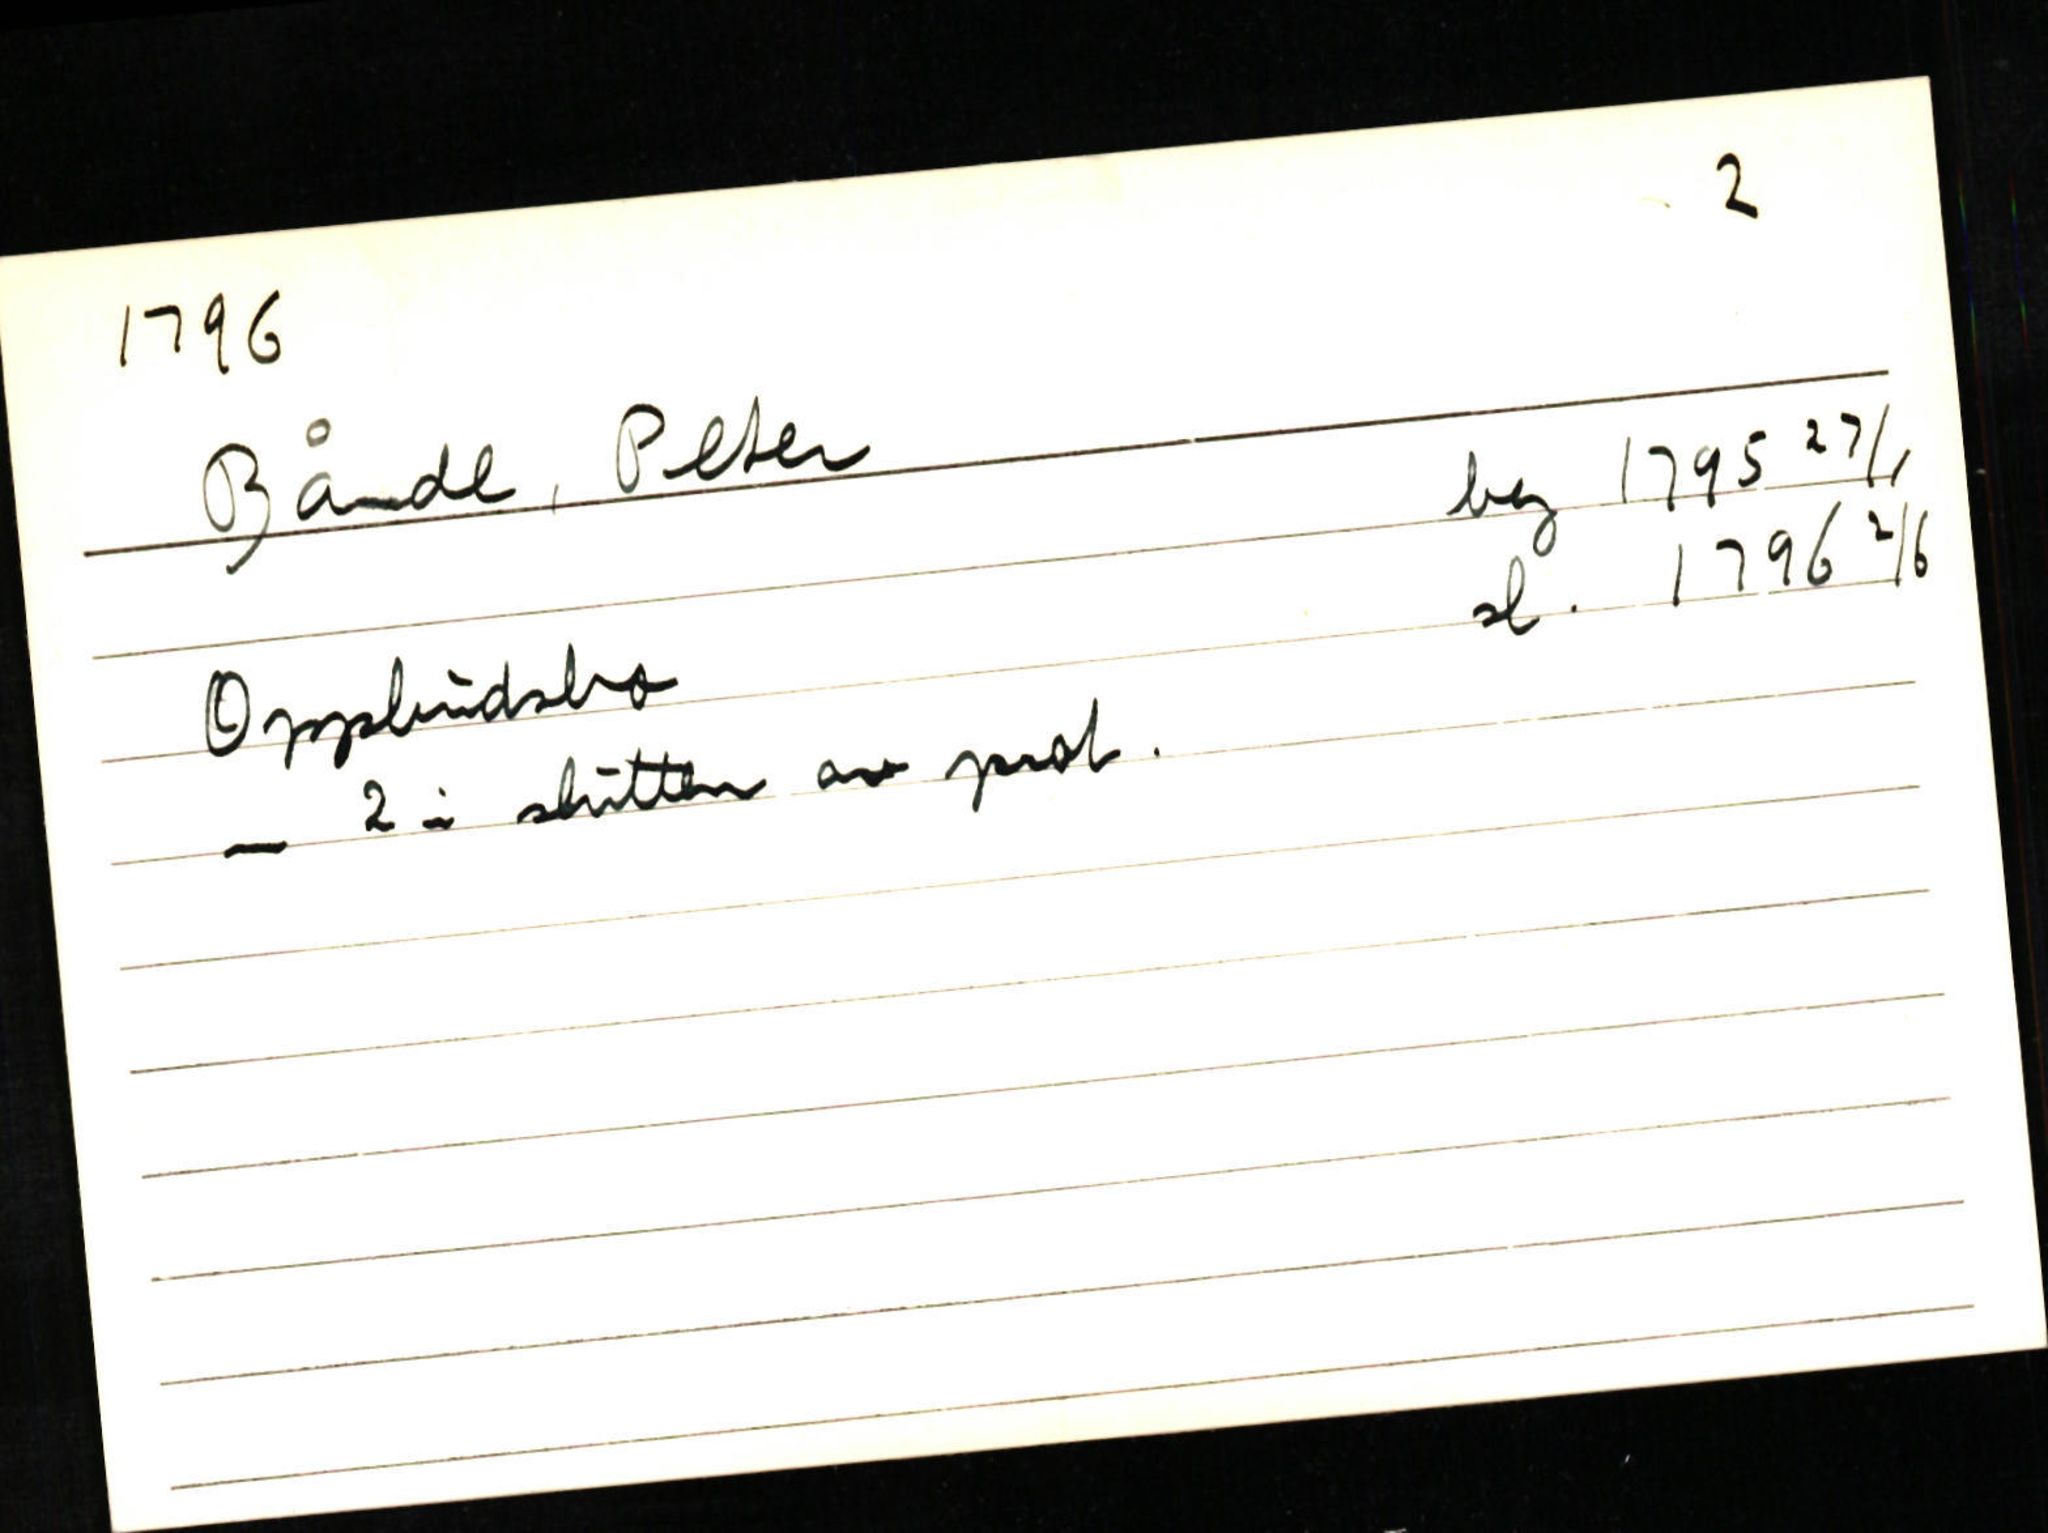 2
1796
Bånde, Peter
beg 1795 27/1
sl. 1796 2/6
Oppbudsbo
— 2 i slutten av prot.